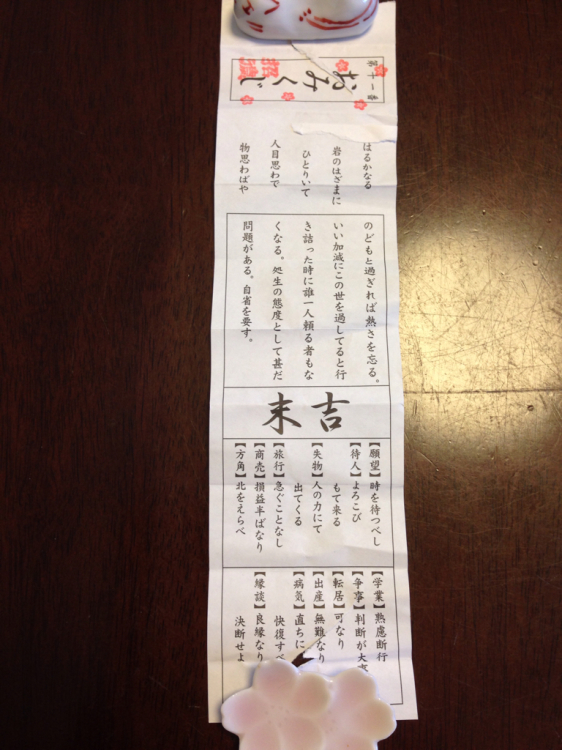 第十一番
おみくじ
はるかなる
岩のはざまに
ひとりいて
人目思わで
物思わばや
のどもと過ぎれば熱さを忘る。
いい加減にこの世を過してると行
き詰った時に誰一人頼る者もな
くなる。処生の態度として甚だ
問題がある。自省を要す。
末吉
【願望】時を待つべし
【待人】よろこび
もて来る
【失物】人の力にて
出てくる
【旅行】急ぐことなし
【商売】損益半ばなり
【方角】北をえらべ
【学業】熟慮断行
【争事】判断が大事
【転居】可なり
【出産】無難なり
【病気】直ちに
快復すべ
【縁談】良縁なり
決断せよ